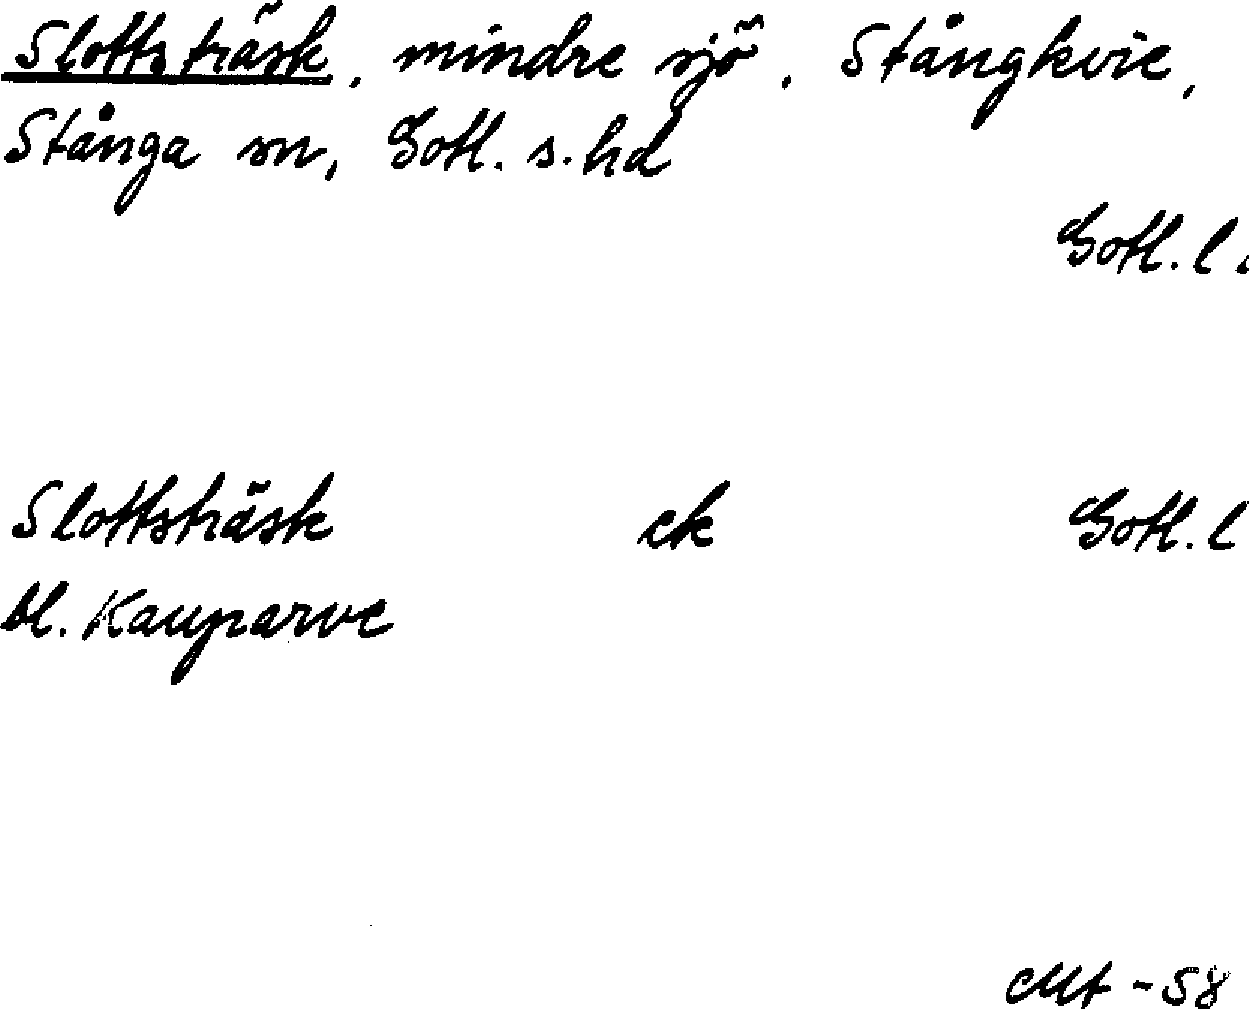 Slottsträsk, mindre sjö, Stångkvie,
Stånga sn, Gotl. s. hd
Gotl. l
Slottsträsk ek Gotl. l
bl. Kauparve
-58